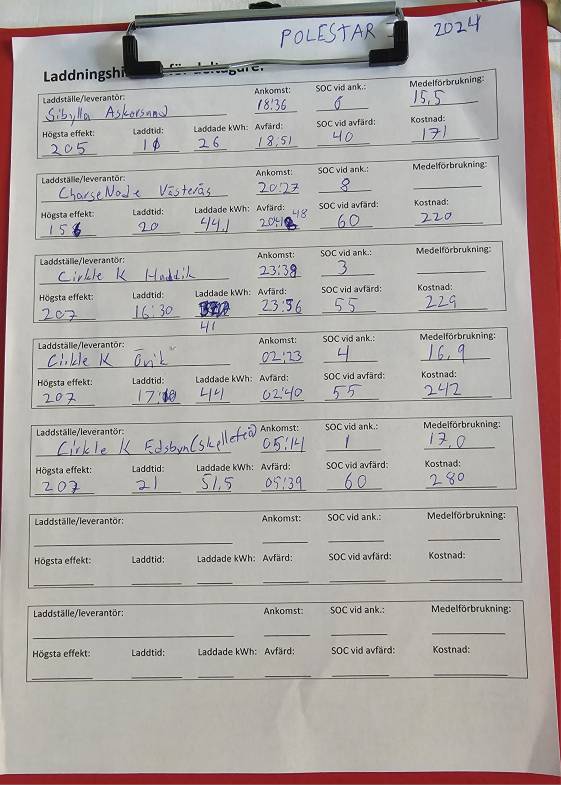 POLESTAR 2 2024
Laddningshi för deltagare:
Laddställe/leverantör: Ankomst: SOC vid ank.: Medelförbrukning:
Sibylla Askersund 18:36 6 15,5
Högsta effekt: Laddtid: Laddade kWh: Avfärd: SOC vid avfärd: Kostnad:
205 10 26 18:51 40 171
Laddställe/leverantör: Ankomst: SOC vid ank.: Medelförbrukning:
ChargeNode Västerås 20:27 8
Högsta effekt: Laddtid: Laddade kWh: Avfärd: SOC vid avfärd: Kostnad:
20 44,1 48 60 220
Laddställe/leverantör: Ankomst: SOC vid ank.: Medelförbrukning:
Cirkle K 23:39 3
Högsta effekt: Laddtid: Laddade kWh: Avfärd: SOC vid avfärd: Kostnad:
207 16:30 23:56 55 229
41
Laddställe/leverantör: Ankomst: SOC vid ank.: Medelförbrukning:
Cirkle K Övik 02:23 4 16,9
Högsta effekt: Laddtid: Laddade kWh: Avfärd: SOC vid avfärd: Kostnad:
207 44 02:40 55 242
Laddställe/leverantör: Ankomst: SOC vid ank.: Medelförbrukning:
Cirkle K Edsbyn (skellefteå) 05:14 1 17,0
Högsta effekt: Laddtid: Laddade kWh: Avfärd: SOC vid avfärd: Kostnad:
207 21 51,5 05:39 60 280
Laddställe/leverantör: Ankomst: SOC vid ank.: Medelförbrukning:
Högsta effekt: Laddtid: Laddade kWh: Avfärd: SOC vid avfärd: Kostnad:
Laddställe/leverantör: Ankomst: SOC vid ank.: Medelförbrukning:
Högsta effekt: Laddtid: Laddade kWh: Avfärd: SOC vid avfärd: Kostnad: